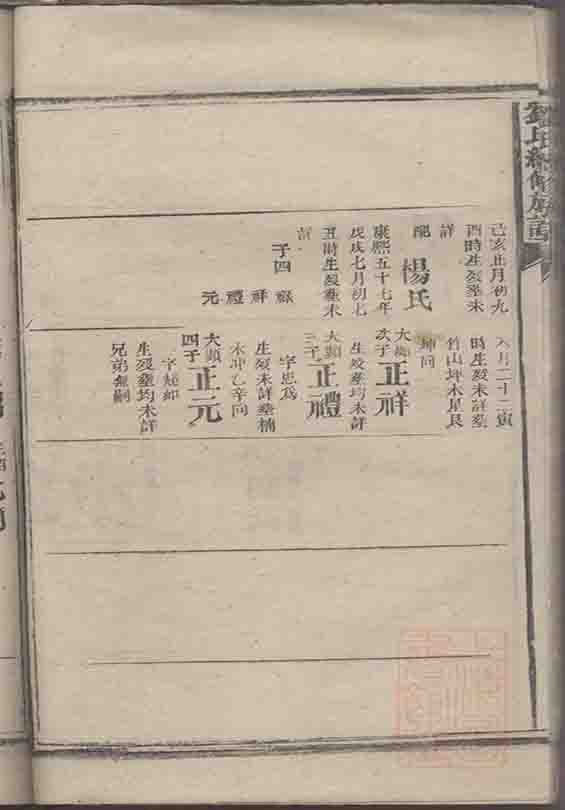 己亥正月初九
酉時生歿塋未
詳
配楊氏
康熙五十七年
戊戌七月初七
丑時生歿塋未
詳
子四 祿
祥
禮
元
八月二十二寅
時生歿未詳塋
竹山坪木星艮
坤向
大顯次子正祥
生歿塋均未詳
大顯三子正禮
字思為
生歿未詳塋楠
木冲乙辛向
大顯四子正元
生歿塋均未詳
兄弟無嗣